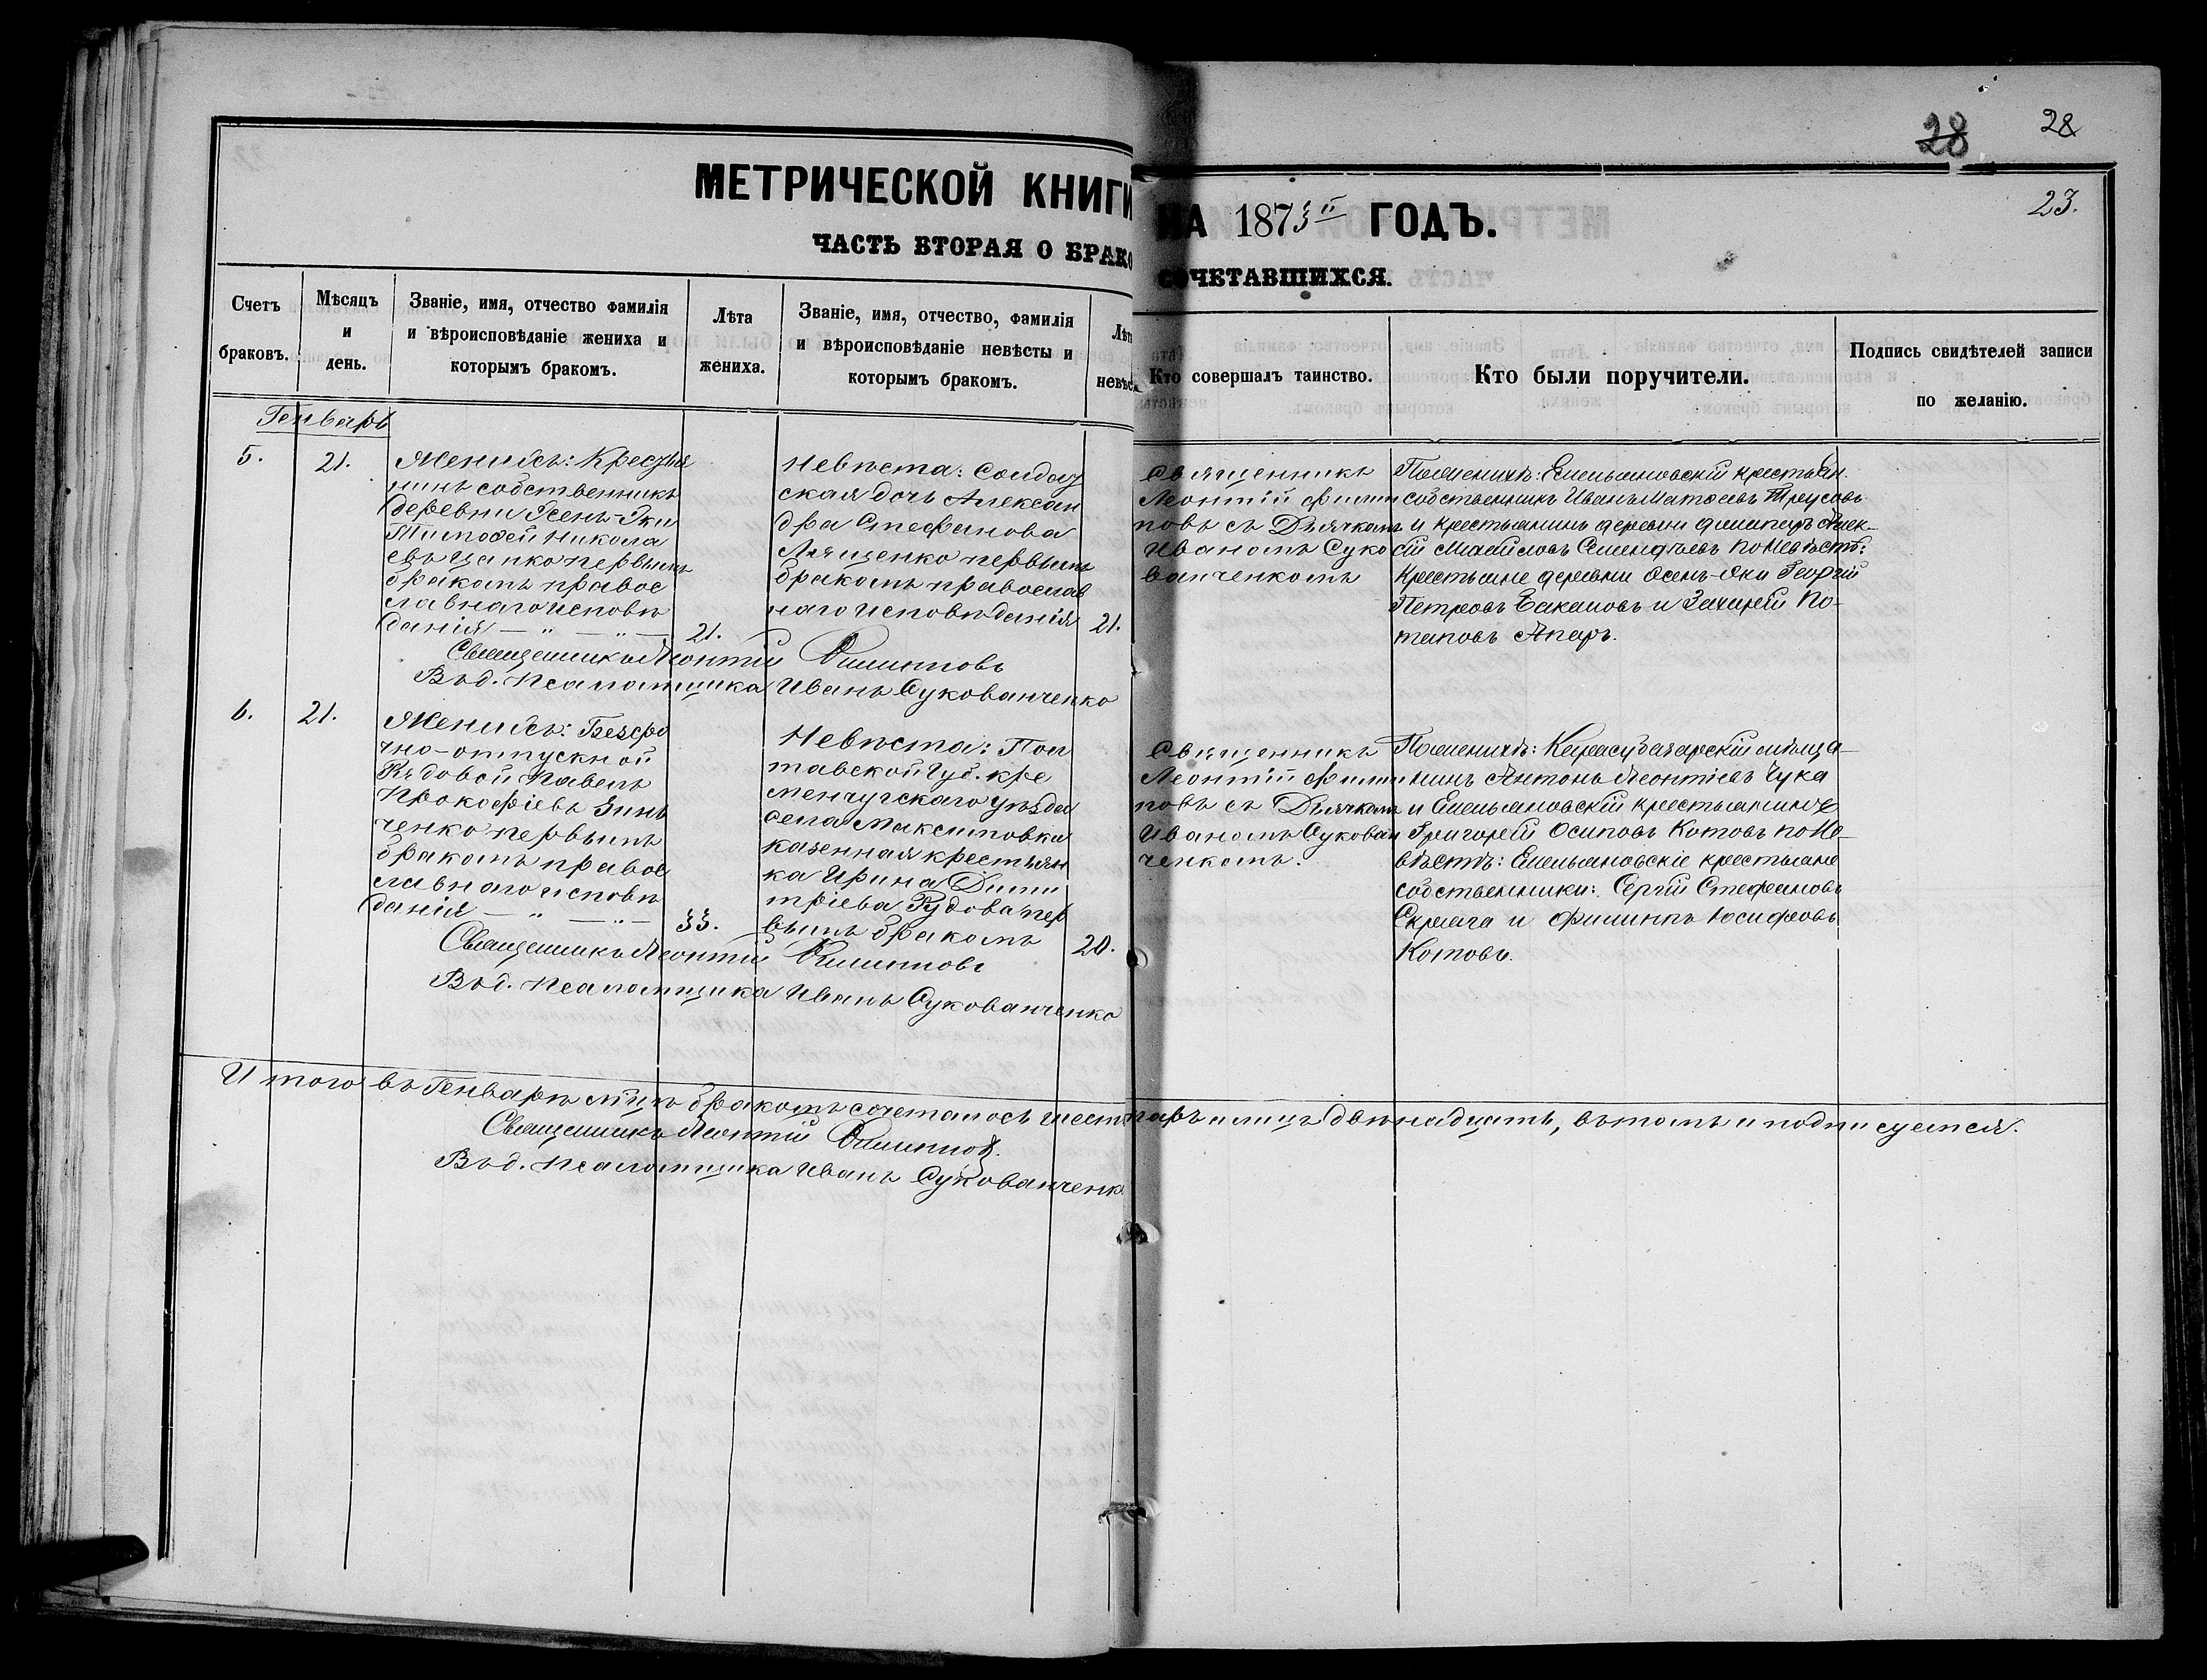 28 28
23.
МЕТРИЧЕСКОЙ КНИГИ
НА 1873й ГОДЪ.
ЧАСТЬ ВТОРАЯ О БРАКО
СОЧЕТАВШИХСЯ.
Счетъ
браковъ.
Мѣсяцъ
и
день.
Званіе, имя, отчество фамилія
и вѣроисповѣданіе жениха и
которымъ бракомъ.
Лѣта
жениха.
Званіе, имя, отчество, фамилія
и вѣроисповѣданіе невѣсты и
которымъ бракомъ.
Лѣта
невѣс
Кто совершалъ таинство.
Кто были поручители.
Подпись свидѣтелей записи
по желанію.
Генварь
5.
21.
Женихъ: Крестья
нинъ собственникъ
деревни Осенъ-Эки
Тимофей Никола
евъ Цапко первымъ
бракомъ правос
лавнаго исповѣ
данія — " — " —
21.
Невѣста: Солдат
ская дочь Алексан
дра Стефанова
Лященко первымъ
бракомъ православ
наго исповѣданія
21.
Священникъ
Леонтій Филип
повъ съ Дьячкомъ
Иваномъ Суко
ванченкомъ
По женихѣ: Емельяновскій крестьян.
собственникъ Иванъ Матѳеевъ Трусовъ
и крестьянинъ деревни Алек-
сій Михайловъ по невѣстѣ:
Крестьяне деревни Осенъ-Эки Георгій
Петровъ Бакаловъ и Захарій По-
таповъ Апаръ.
Священникъ Леонтій Филипповъ
Въ д. Псаломщика Иванъ Сукованченко
6.
21.
Женихъ: Безсро
чно-отпускной
Рядовой Павелъ
Прокофіевъ Зинь
ченко первымъ
бракомъ правос
лавнаго исповѣ
данія — " — " —
33.
Невѣста: Пол
тавской Губ. Кре
менчугскаго уѣзда
села Максимовки
казенная крестьян
ка Ирина Дими
тріева Рудова пер
вымъ бракомъ
20.
Священникъ
Леонтій Филип
повъ съ Дьячкомъ
Иваномъ Сукован
ченкомъ.
По женихѣ: Карасубазарскій мѣща-
нинъ Антонъ Леонтіевъ Чука
и Емельяновскій крестьянинъ
Григорій Осиповъ Котовъ по Не-
вѣстѣ: Емельяновскіе крестьяне
собственники: Сергій Стефановъ
Скряга и Филиппъ Іосифовъ
Котовъ.
Священникъ Леонтій Филипповъ
Въ д. Псаломщика Иванъ Сукованченко
Итого въ Генварѣ мцѣ бракомъ сочеталось шесть паръ а лицъ двѣнадцать, въ томъ и подписуемся.
Священникъ Леонтій Филипповъ.
Въ д. Псаломщика Иванъ Сукованченк